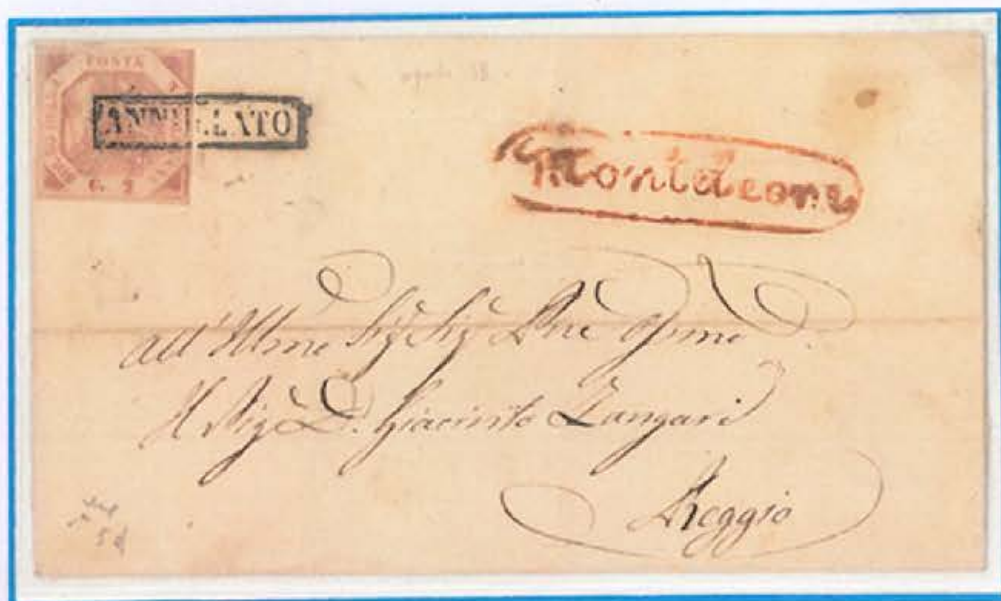 POSTA
G. 2
ANNULLATO
Monteleone
agosto 58
All'Illmo Sig Sig Pne Ossmo
Il Sig D. Giacinto Zangari
Reggio